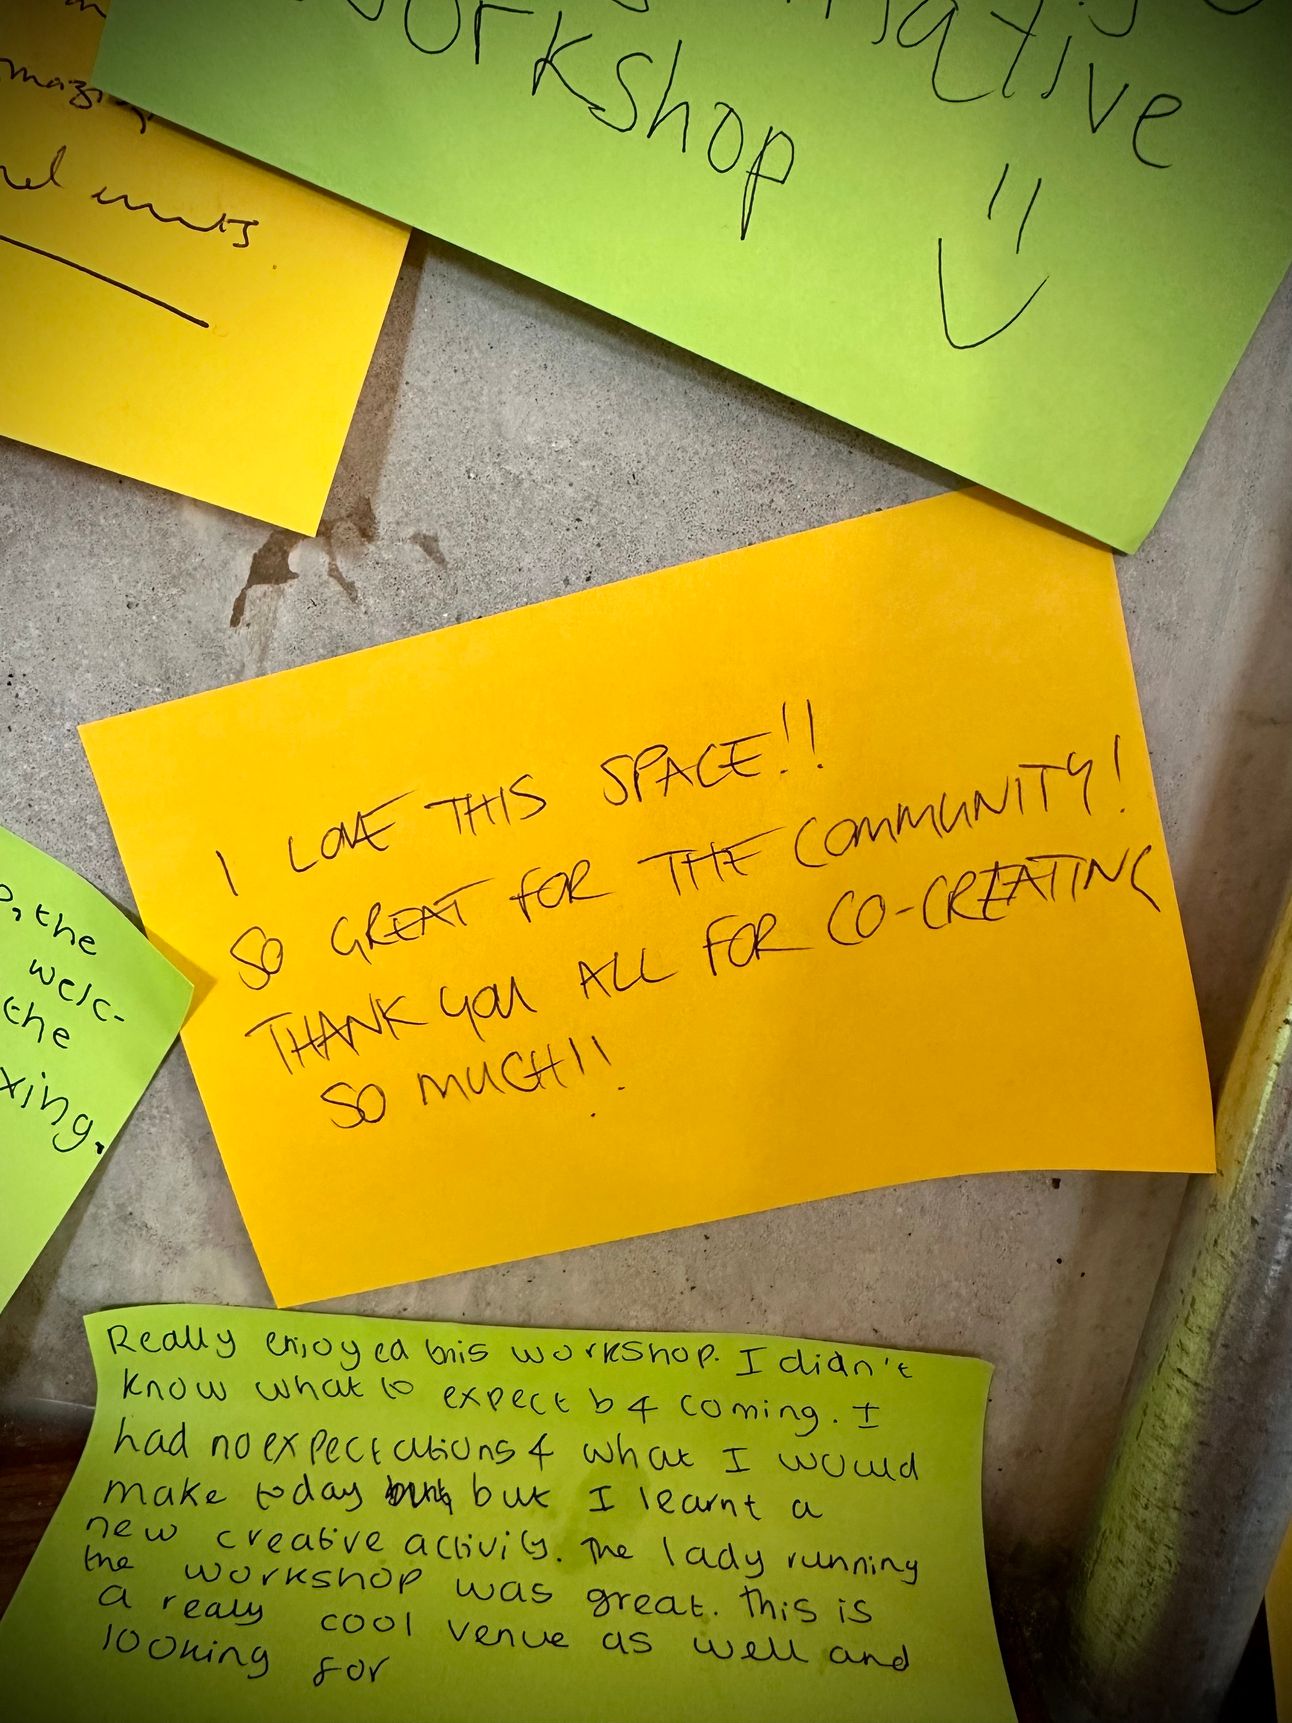 workshop
ative
unts
I LOVE THIS SPACE!!
SO GREAT FOR THE COMMUNITY!
THANK YOU ALL FOR CO-CREATING
SO MUCH!!
, the
welc-
the
xing.
Really enjoyed this workshop. I didn't
know what to expect b4 coming. I
had no expectations 4 what I would
make today but I learnt a
new creative activity. The lady running
the workshop was great. This is
a really cool venue as well and
looking for